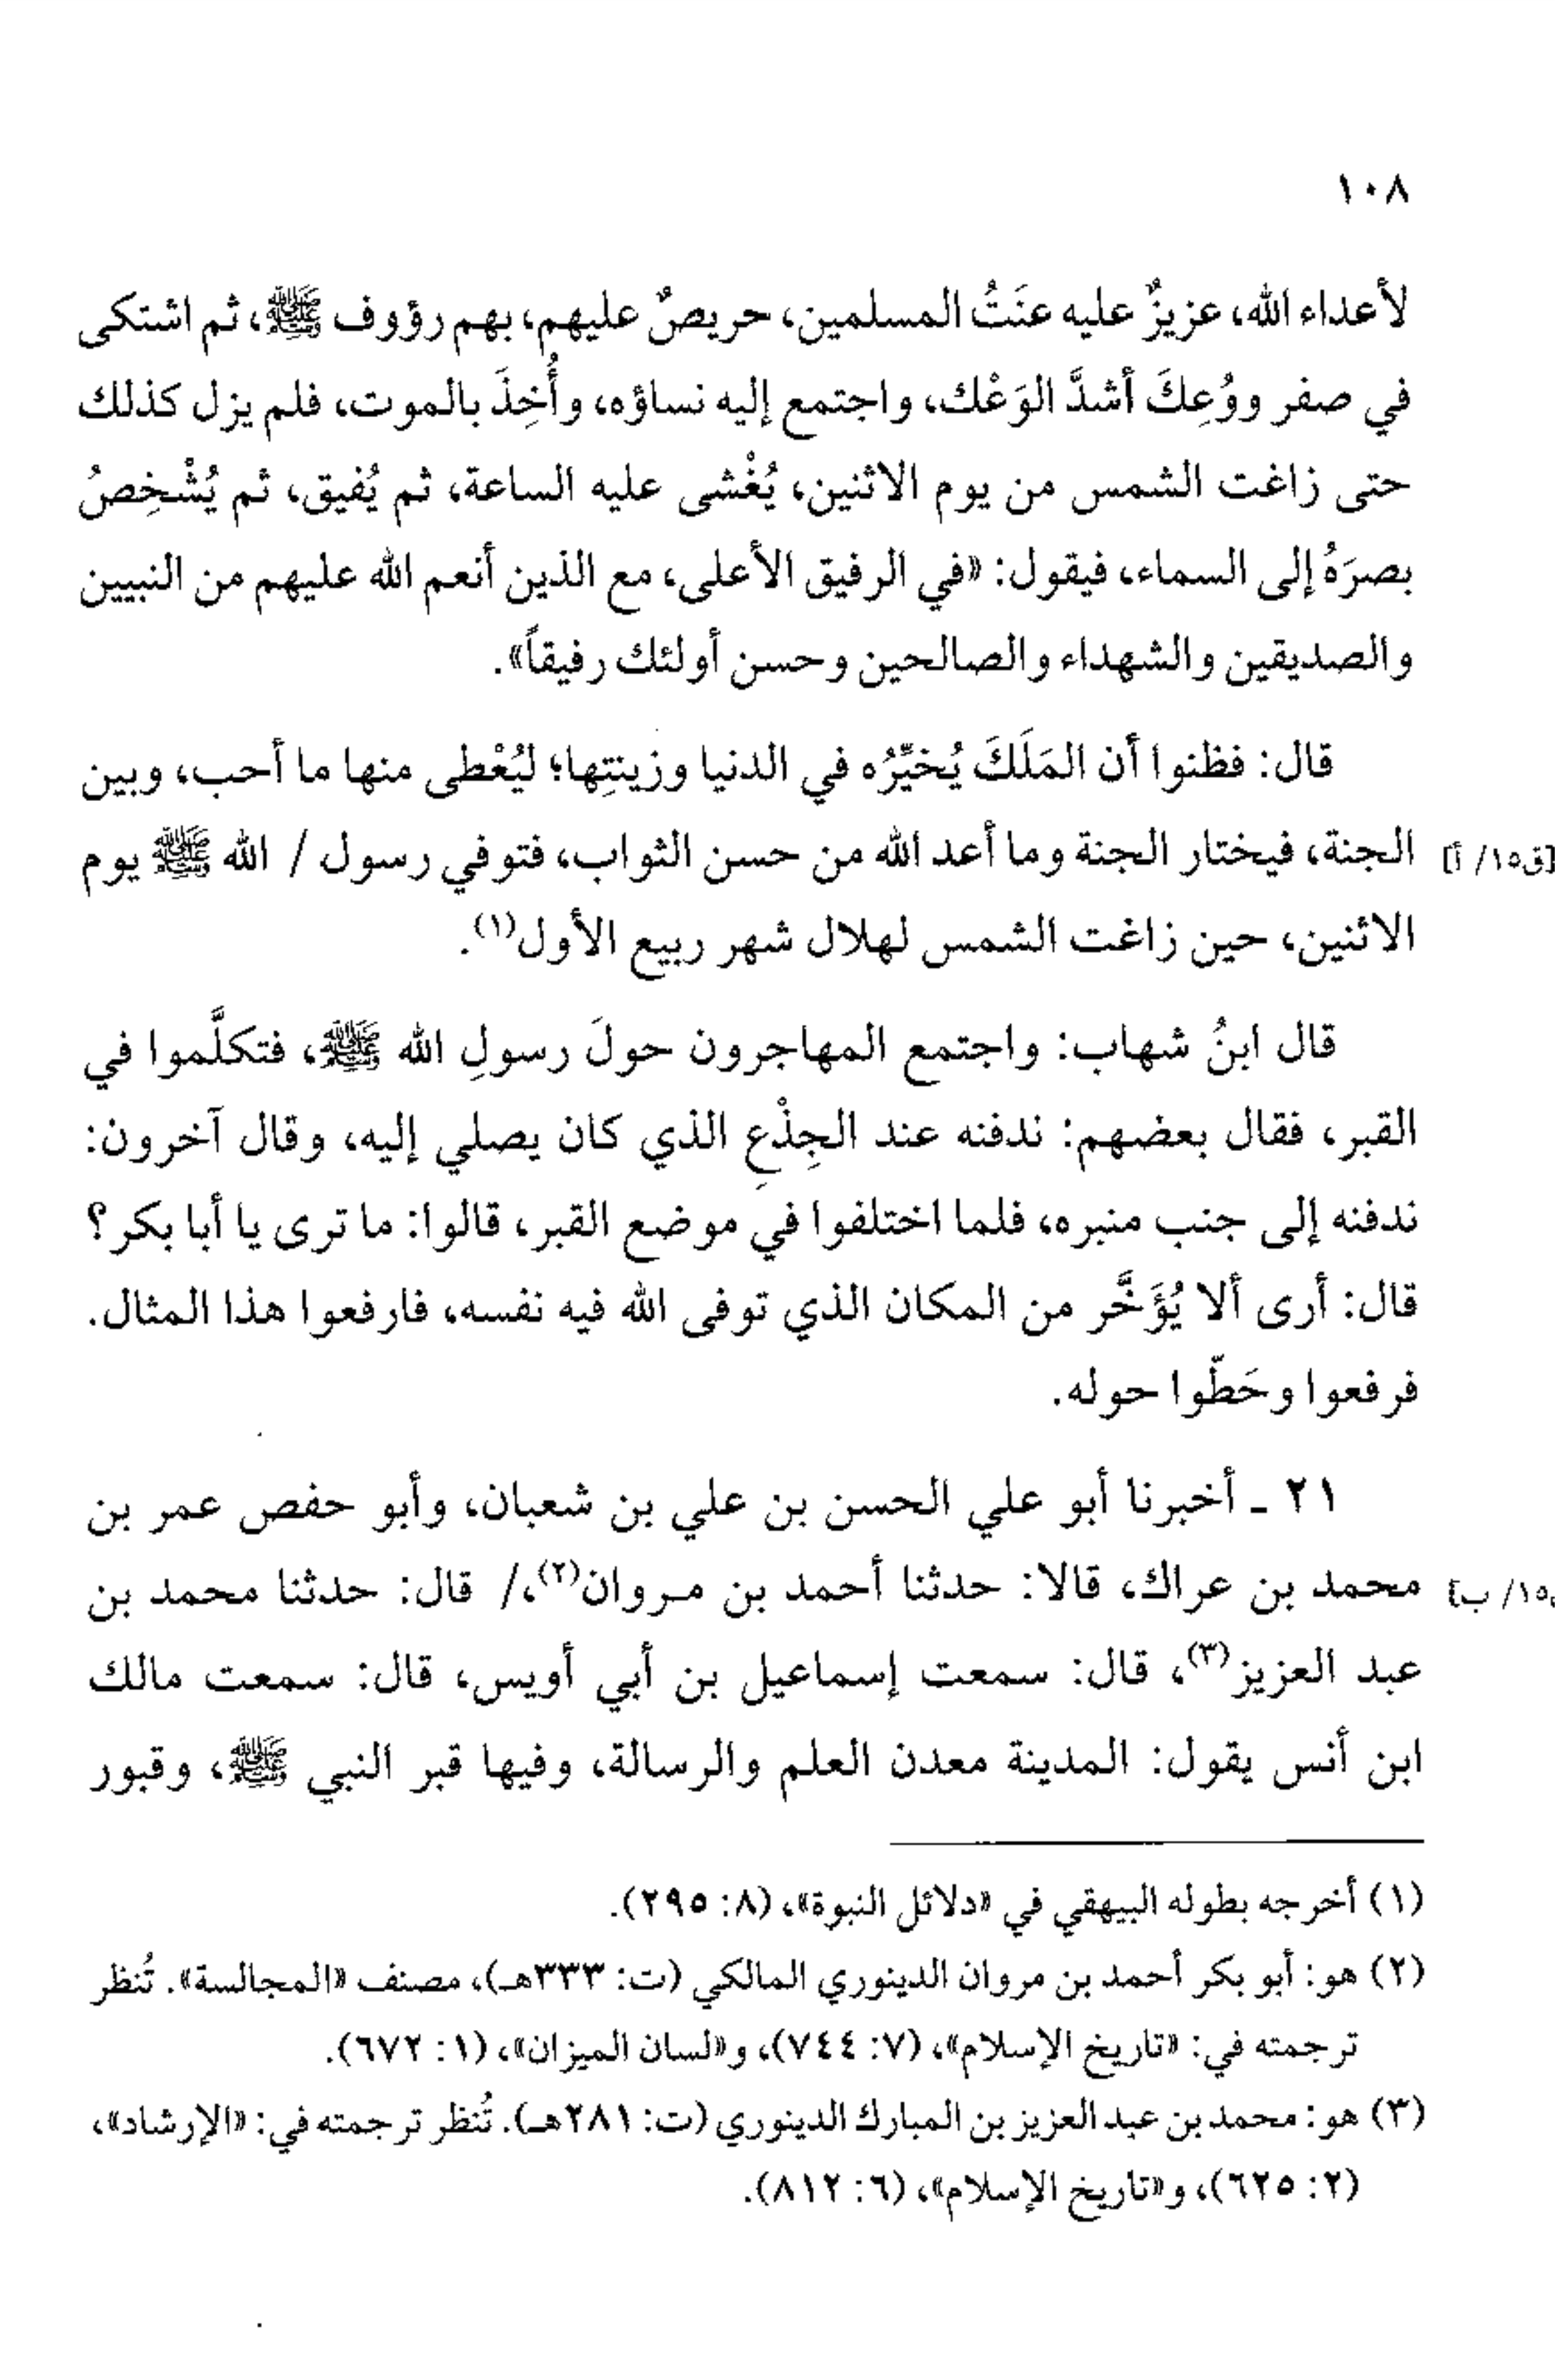 ١٠٨
لأعداء الله، عزيزٌ عليه عنَتُ المسلمين، حريصٌ عليهم، بهم رؤوف ﷺ، ثم اشتكى
في صفر ووُعِكَ أشدَّ الوَعْك، واجتمع إليه نساؤه، وأُخِذَ بالموت، فلم يزل كذلك
حتى زاغت الشمس من يوم الاثنين، يُغْشى عليه الساعة، ثم يُفيق، ثم يُشْخِصُ
بصرَهُ إلى السماء، فيقول: «في الرفيق الأعلى، مع الذين أنعم الله عليهم من النبيين
والصديقين والشهداء والصالحين وحسن أولئك رفيقاً».
قال: فظنوا أن المَلَكَ يُخيِّرُه في الدنيا وزينتِها؛ ليُعْطى منها ما أحب، وبين
[ق١٥/ أ] الجنة، فيختار الجنة وما أعد الله من حسن الثواب، فتوفي رسول / الله ﷺ يوم
الاثنين، حين زاغت الشمس لهلال شهر ربيع الأول(١).
قال ابنُ شهاب: واجتمع المهاجرون حولَ رسولِ الله ﷺ، فتكلَّموا في
القبر، فقال بعضهم: ندفنه عند الجِذْعِ الذي كان يصلي إليه، وقال آخرون:
ندفنه إلى جنب منبره، فلما اختلفوا في موضع القبر، قالوا: ما ترى يا أبا بكر؟
قال: أرى ألا يُؤَخَّر من المكان الذي توفى الله فيه نفسه، فارفعوا هذا المثال.
فرفعوا وحَطّوا حوله.
٢١ ـ أخبرنا أبو علي الحسن بن علي بن شعبان، وأبو حفص عمر بن
١٥/ ب] محمد بن عراك، قالا: حدثنا أحمد بن مروان(٢)،/ قال: حدثنا محمد بن
عبد العزيز(٣)، قال: سمعت إسماعيل بن أبي أويس، قال: سمعت مالك
ابن أنس يقول: المدينة معدن العلم والرسالة، وفيها قبر النبي ﷺ، وقبور
(١) أخرجه بطوله البيهقي في «دلائل النبوة»، (٨: ٢٩٥).
(٢) هو: أبو بكر أحمد بن مروان الدينوري المالكي (ت: ٣٣٣هـ)، مصنف «المجالسة». تُنظر
ترجمته في: «تاريخ الإسلام»، (٧: ٧٤٤)، و«لسان الميزان»، (١: ٦٧٢).
(٣) هو: محمد بن عبد العزيز بن المبارك الدينوري (ت: ٢٨١هـ). تُنظر ترجمته في: «الإرشاد»،
(٢: ٦٢٥)، و«تاريخ الإسلام»، (٦: ٨١٢).